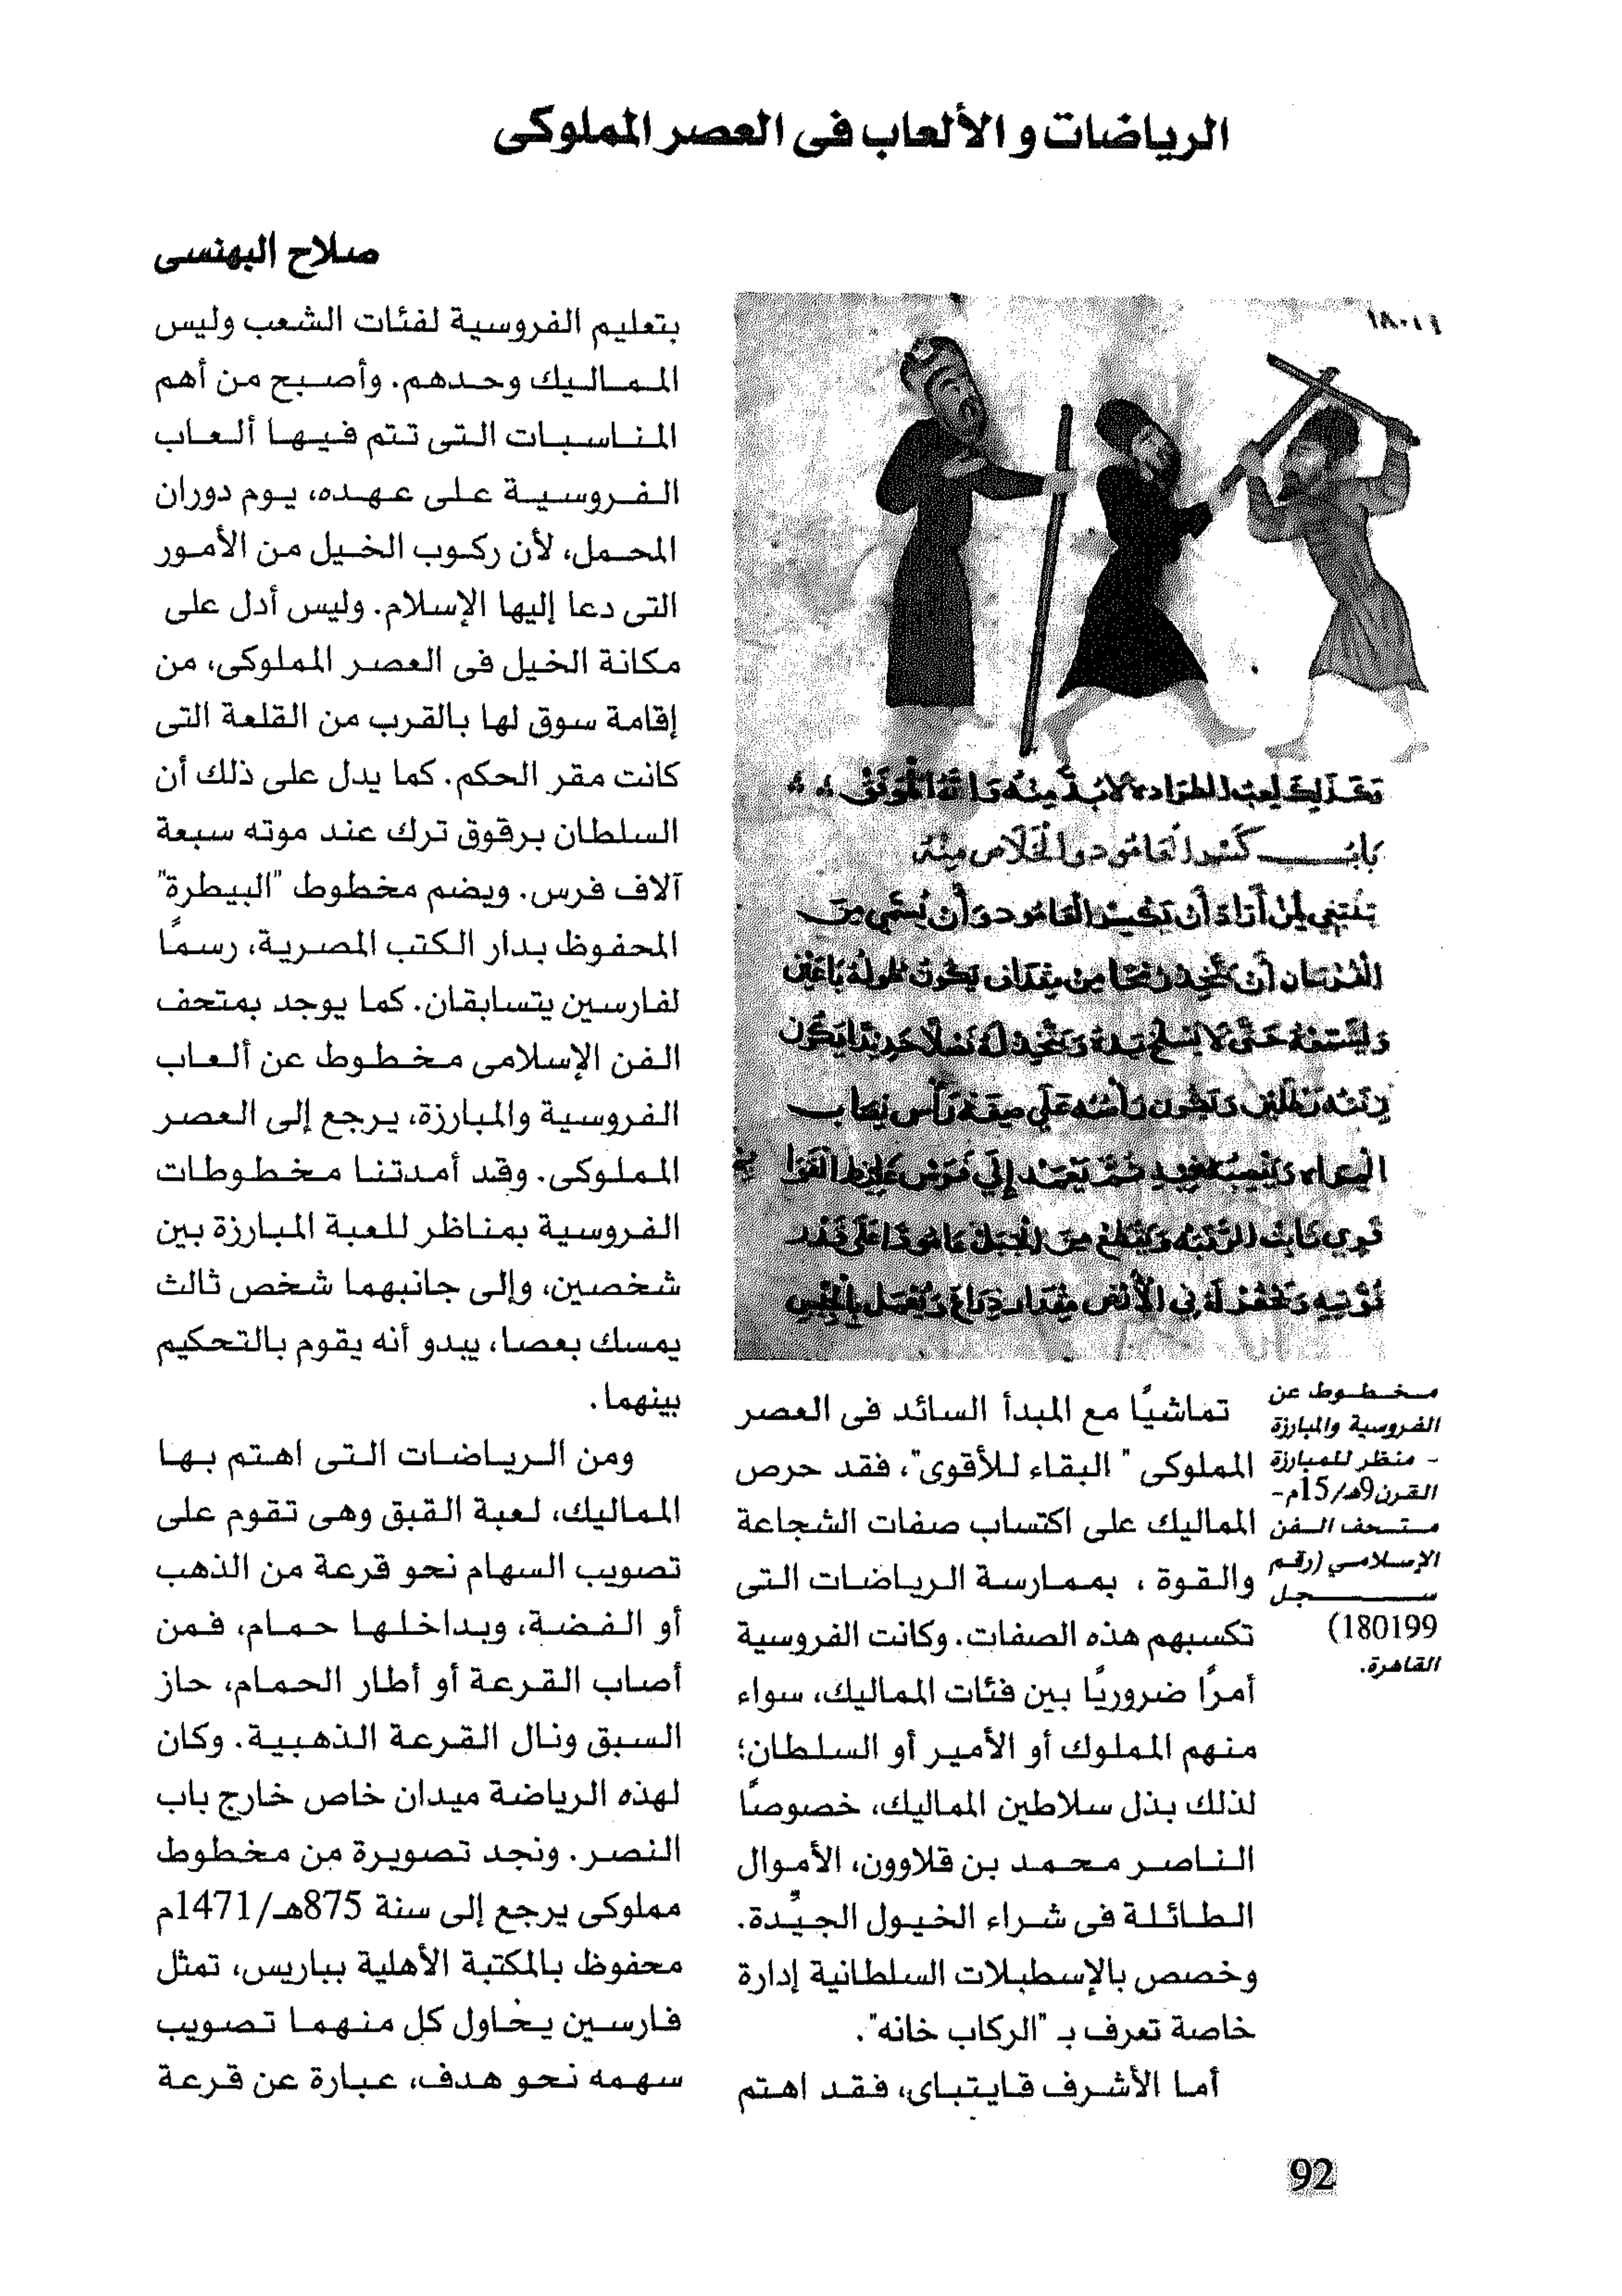 الرياضات و الألعاب فى العصر المملوكى
صلاح البهنسى
مخطوط عن
الفروسية والمبارزة
- منظر للمبارزة
القرن9هـ/15م-
متحف الفن
الإسلامي (رقم
سجل
180199)
القاهرة.
تماشيًا مع المبدأ السائد فى العصر
المملوكى " البقاء للأقوى"، فقد حرص
المماليك على اكتساب صفات الشجاعة
والقوة ، بممارسة الرياضات التى
تكسبهم هذه الصفات. وكانت الفروسية
أمرًا ضروريًا بين فئات المماليك، سواء
منهم المملوك أو الأمير أو السلطان؛
لذلك بذل سلاطين المماليك، خصوصًا
الناصر محمد بن قلاوون، الأموال
الطائلة فى شراء الخيول الجيّدة.
وخصص بالإسطبلات السلطانية إدارة
خاصة تعرف بـ "الركاب خانه".
أما الأشرف قايتباى، فقد اهتم
بتعليم الفروسية لفئات الشعب وليس
المماليك وحدهم. وأصبح من أهم
المناسبات التى تتم فيها ألعاب
الفروسية على عهده، يوم دوران
المحمل، لأن ركوب الخيل من الأمور
التى دعا إليها الإسلام. وليس أدل على
مكانة الخيل فى العصر المملوكى، من
إقامة سوق لها بالقرب من القلعة التى
كانت مقر الحكم. كما يدل على ذلك أن
السلطان برقوق ترك عند موته سبعة
آلاف فرس. ويضم مخطوط "البيطرة"
المحفوظ بدار الكتب المصرية، رسمًا
لفارسين يتسابقان. كما يوجد بمتحف
الفن الإسلامى مخطوط عن ألعاب
الفروسية والمبارزة، يرجع إلى العصر
المملوكى. وقد أمدتنا مخطوطات
الفروسية بمناظر للعبة المبارزة بين
شخصين، وإلى جانبهما شخص ثالث
يمسك بعصا، يبدو أنه يقوم بالتحكيم
بينهما.
ومن الرياضات التى اهتم بها
المماليك، لعبة القبق وهى تقوم على
تصويب السهام نحو قرعة من الذهب
أو الفضة، وبداخلها حمام، فمن
أصاب القرعة أو أطار الحمام، حاز
السبق ونال القرعة الذهبية. وكان
لهذه الرياضة ميدان خاص خارج باب
النصر. ونجد تصويرة من مخطوط
مملوكى يرجع إلى سنة 875هـ/1471م
محفوظ بالمكتبة الأهلية بباريس، تمثل
فارسين يحاول كل منهما تصويب
سهمه نحو هدف، عبارة عن قرعة
92